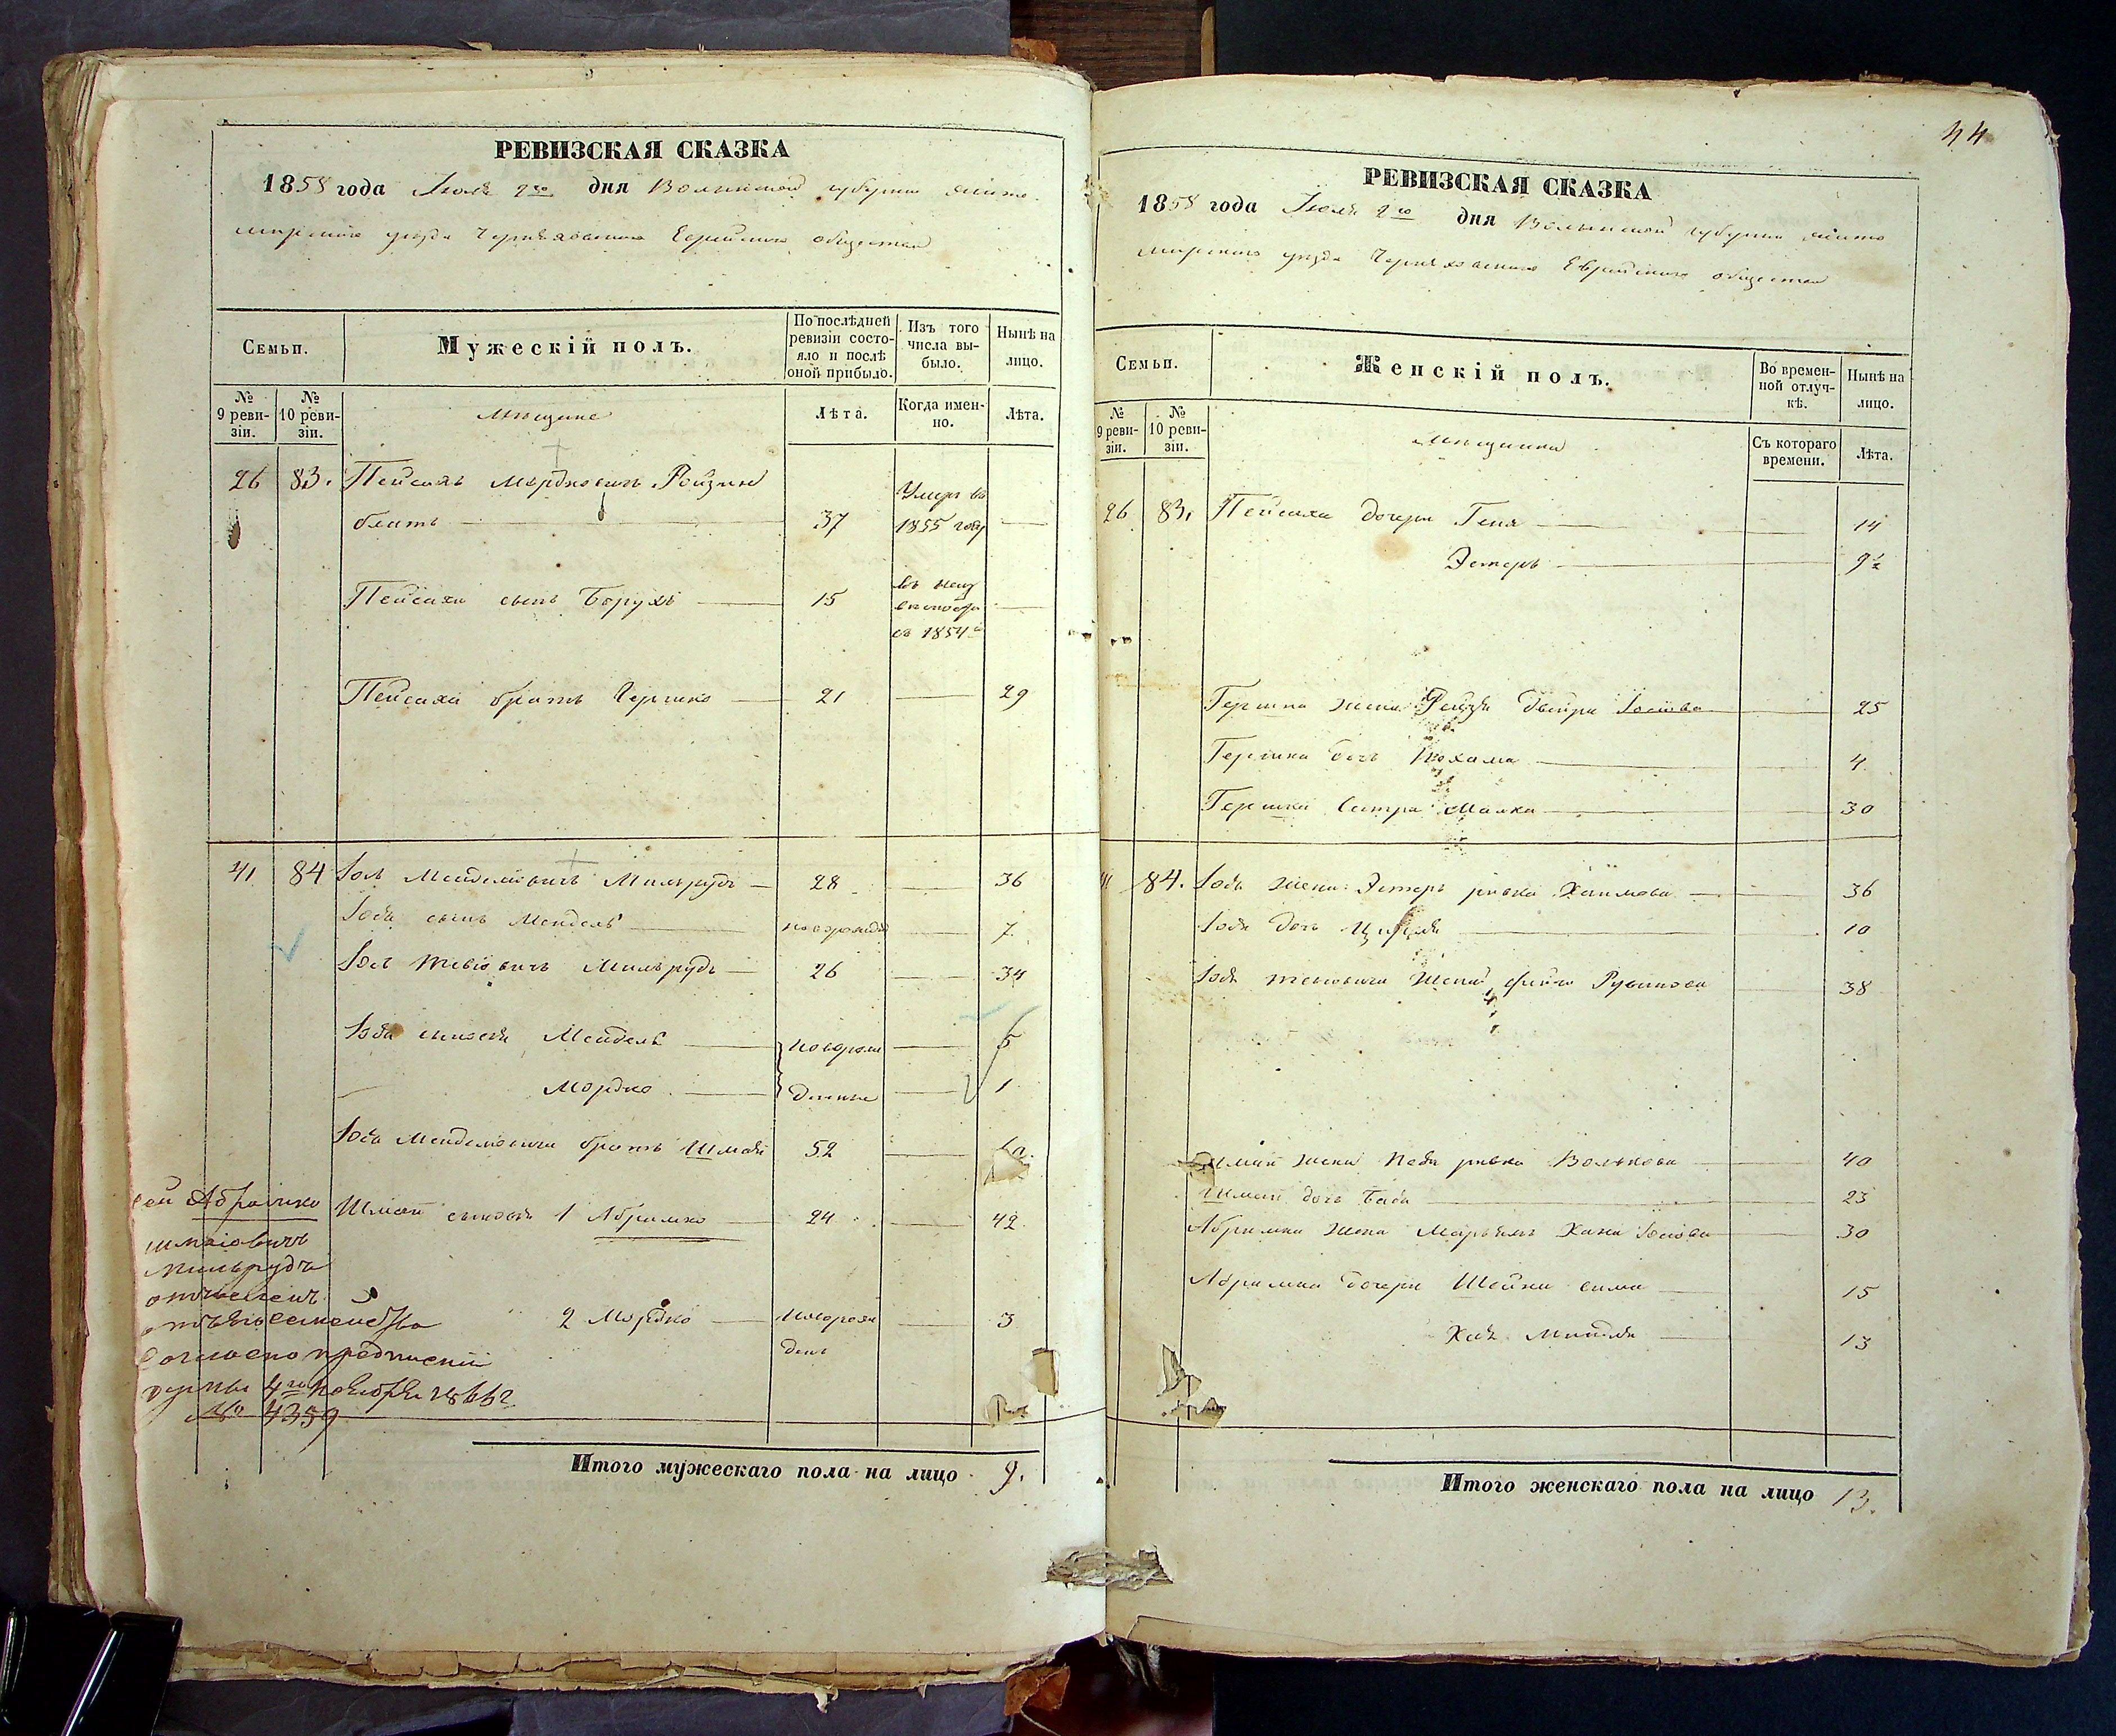 РЕВИЗСКАЯ СКАЗКА
1858 года Июля 2го дня Волынской губерніи Жито-
мирскаго уезда Черняховскаго Еврейскаго общества
Семьи.
Мужескій полъ.
По последней ревизіи состо-
яло и после
оной прибыло.
Изъ того
числа вы-
было.
Ныне на
лицо.
№
9 реви-
зіи.
№
10 реви-
зіи.
мещане
Лета.
Когда имен-
но.
Лета.
26 83. Пейсахъ Мордковичъ Ройзин
блитъ 37 Умеръ въ 1855 году
Пейсаха сынъ Борухъ 15 въ 1854
Пейсаха братъ Гершко 21 29
41 84 Іось Менделіовичъ Мильрудъ 28 36
Іося сынъ Мендель новорожд 7
Іось Тевіовичъ Мильрудъ 26 34
Іося сыновья Мендель новорож 5
Мордко денные 1
Іося Менделіовича братъ Шмай 52
Шмаи сыновья 1 Абрамко 24 42
2 Мордко новорож 3
денъ
сей Абрамко
Шмаіовичъ
Мильрудъ
семейства
согласно предписанія
4го Ноября 1866
№ 4359
Итого мужескаго пола на лицо 9.
44
РЕВИЗСКАЯ СКАЗКА
1858 года Июля 2го дня Волынской губерніи Жито
мирскаго уезда Черняховскаго Еврейскаго общества
Семьи.
Женскій полъ.
Во времен-
ной отлуч-
ке.
Ныне на
лицо.
№
9 реви-
зіи.
№
10 реви-
зіи.
мещанки
Съ котораго
времени.
Лета.
26 83. Пейсаха дочери Геня 14
Эстеръ 9½
Гершка жена Рейзя Двейра Іосіова 25
Гершка дочь Нохама 4
Гершка Сестра Малка 30
41 84. Іося жена Эстеръ ривка Хаимова 36
Іося дочь 10
Іося Тевіовича жена Рувинова 38
Шмаи жена ривка Волькова 40
Шмаи дочь Баба 23
Абрамка жена Марьямъ Хана Іосіова 30
Абрамка дочери Шейна сима 15
Хая Миндля 13
Итого женскаго пола на лицо 13.